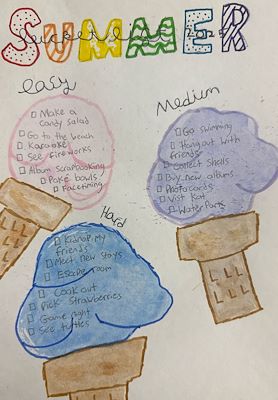 SUMMER
bucket list 2025
easy
□ Make a
candy salad
□ Go to the beach
□ Karaoke
□ See fireworks
□ Album scrapbooking
□ Poke bowls
□ Facetiming
Medium
□ Go swimming
□ Hang out with
friends
□ Collect shells
□ Buy new albums
□ Photocards
□ Visit Kat
□ Water Park
Hard
□ Kidnap my
friends
□ Meet new stays
□ Escape room
□ Cook out
□ Pick strawberries
□ Game night
□ See turtles